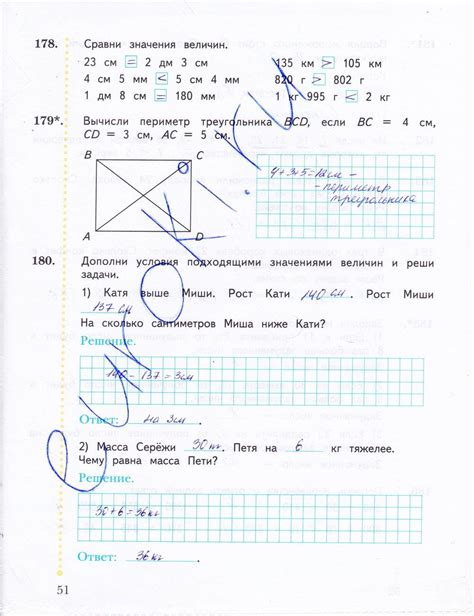 178. Сравни значения величин.
23 см = 2 дм 3 см 135 км > 105 км
4 см 5 мм < 5 см 4 мм 820 г > 802 г
1 дм 8 см = 180 мм 1 кг 995 г < 2 кг
179*. Вычисли периметр треугольника BCD, если BC = 4 см,
CD = 3 см, AC = 5 см.
B C
A D
4+3+5=12см -
- периметр
треугольника
180. Дополни условия подходящими значениями величин и реши
задачи.
1) Катя выше Миши. Рост Кати 140 см. Рост Миши
137 см
На сколько сантиметров Миша ниже Кати?
Решение.
140 - 137 = 3см
Ответ: на 3см.
2) Масса Серёжи 30 кг. Петя на 6 кг тяжелее.
Чему равна масса Пети?
Решение.
30+6=36кг
Ответ: 36кг
51